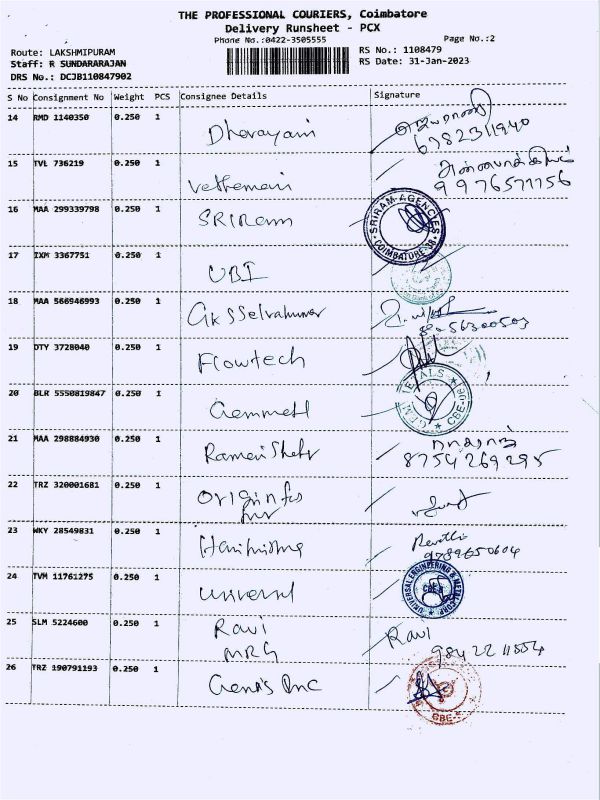 THE PROFESSIONAL COURIERS, Coimbatore
Delivery Runsheet - PCX
Phone No.:0422-3505555
Page No.:2
Route: LAKSHMIPURAM
RS No.: 1108479
Staff: R SUNDARARAJAN
RS Date: 31-Jan-2023
DRS No.: DCJB110847902
S No Consignment No Weight PCS Consignee Details Signature
14 RMD 1140350 0.250 1 Dhevayani
6782311940
15 TVL 736219 0.250 1 vethamani
9976571156
16 MAA 299339798 0.250 1 SRIRam
SRIRAM AGENCIES
COIMBATORE
17 IXM 3367751 0.250 1 UBI
18 MAA 566946993 0.250 1 GKSSelvakumar
19 DTY 3728040 0.250 1 Flowtech
20 BLR 5550819847 0.250 1 Gemmetl
GEM METALS
CBE-06
21 MAA 298884930 0.250 1
நாகராஜ்
8754269295
22 TRZ 320001681 0.250 1
23 WKY 28549831 0.250 1
Revathi
9789650604
24 TVM 11761275 0.250 1 universal
UNIVERSAL ENGINEERING & METAL CORP
25 SLM 5224600 0.250 1 Ravi
MRG
Ravi
26 TRZ 190791193 0.250 1 Gena's Inc
CBE-